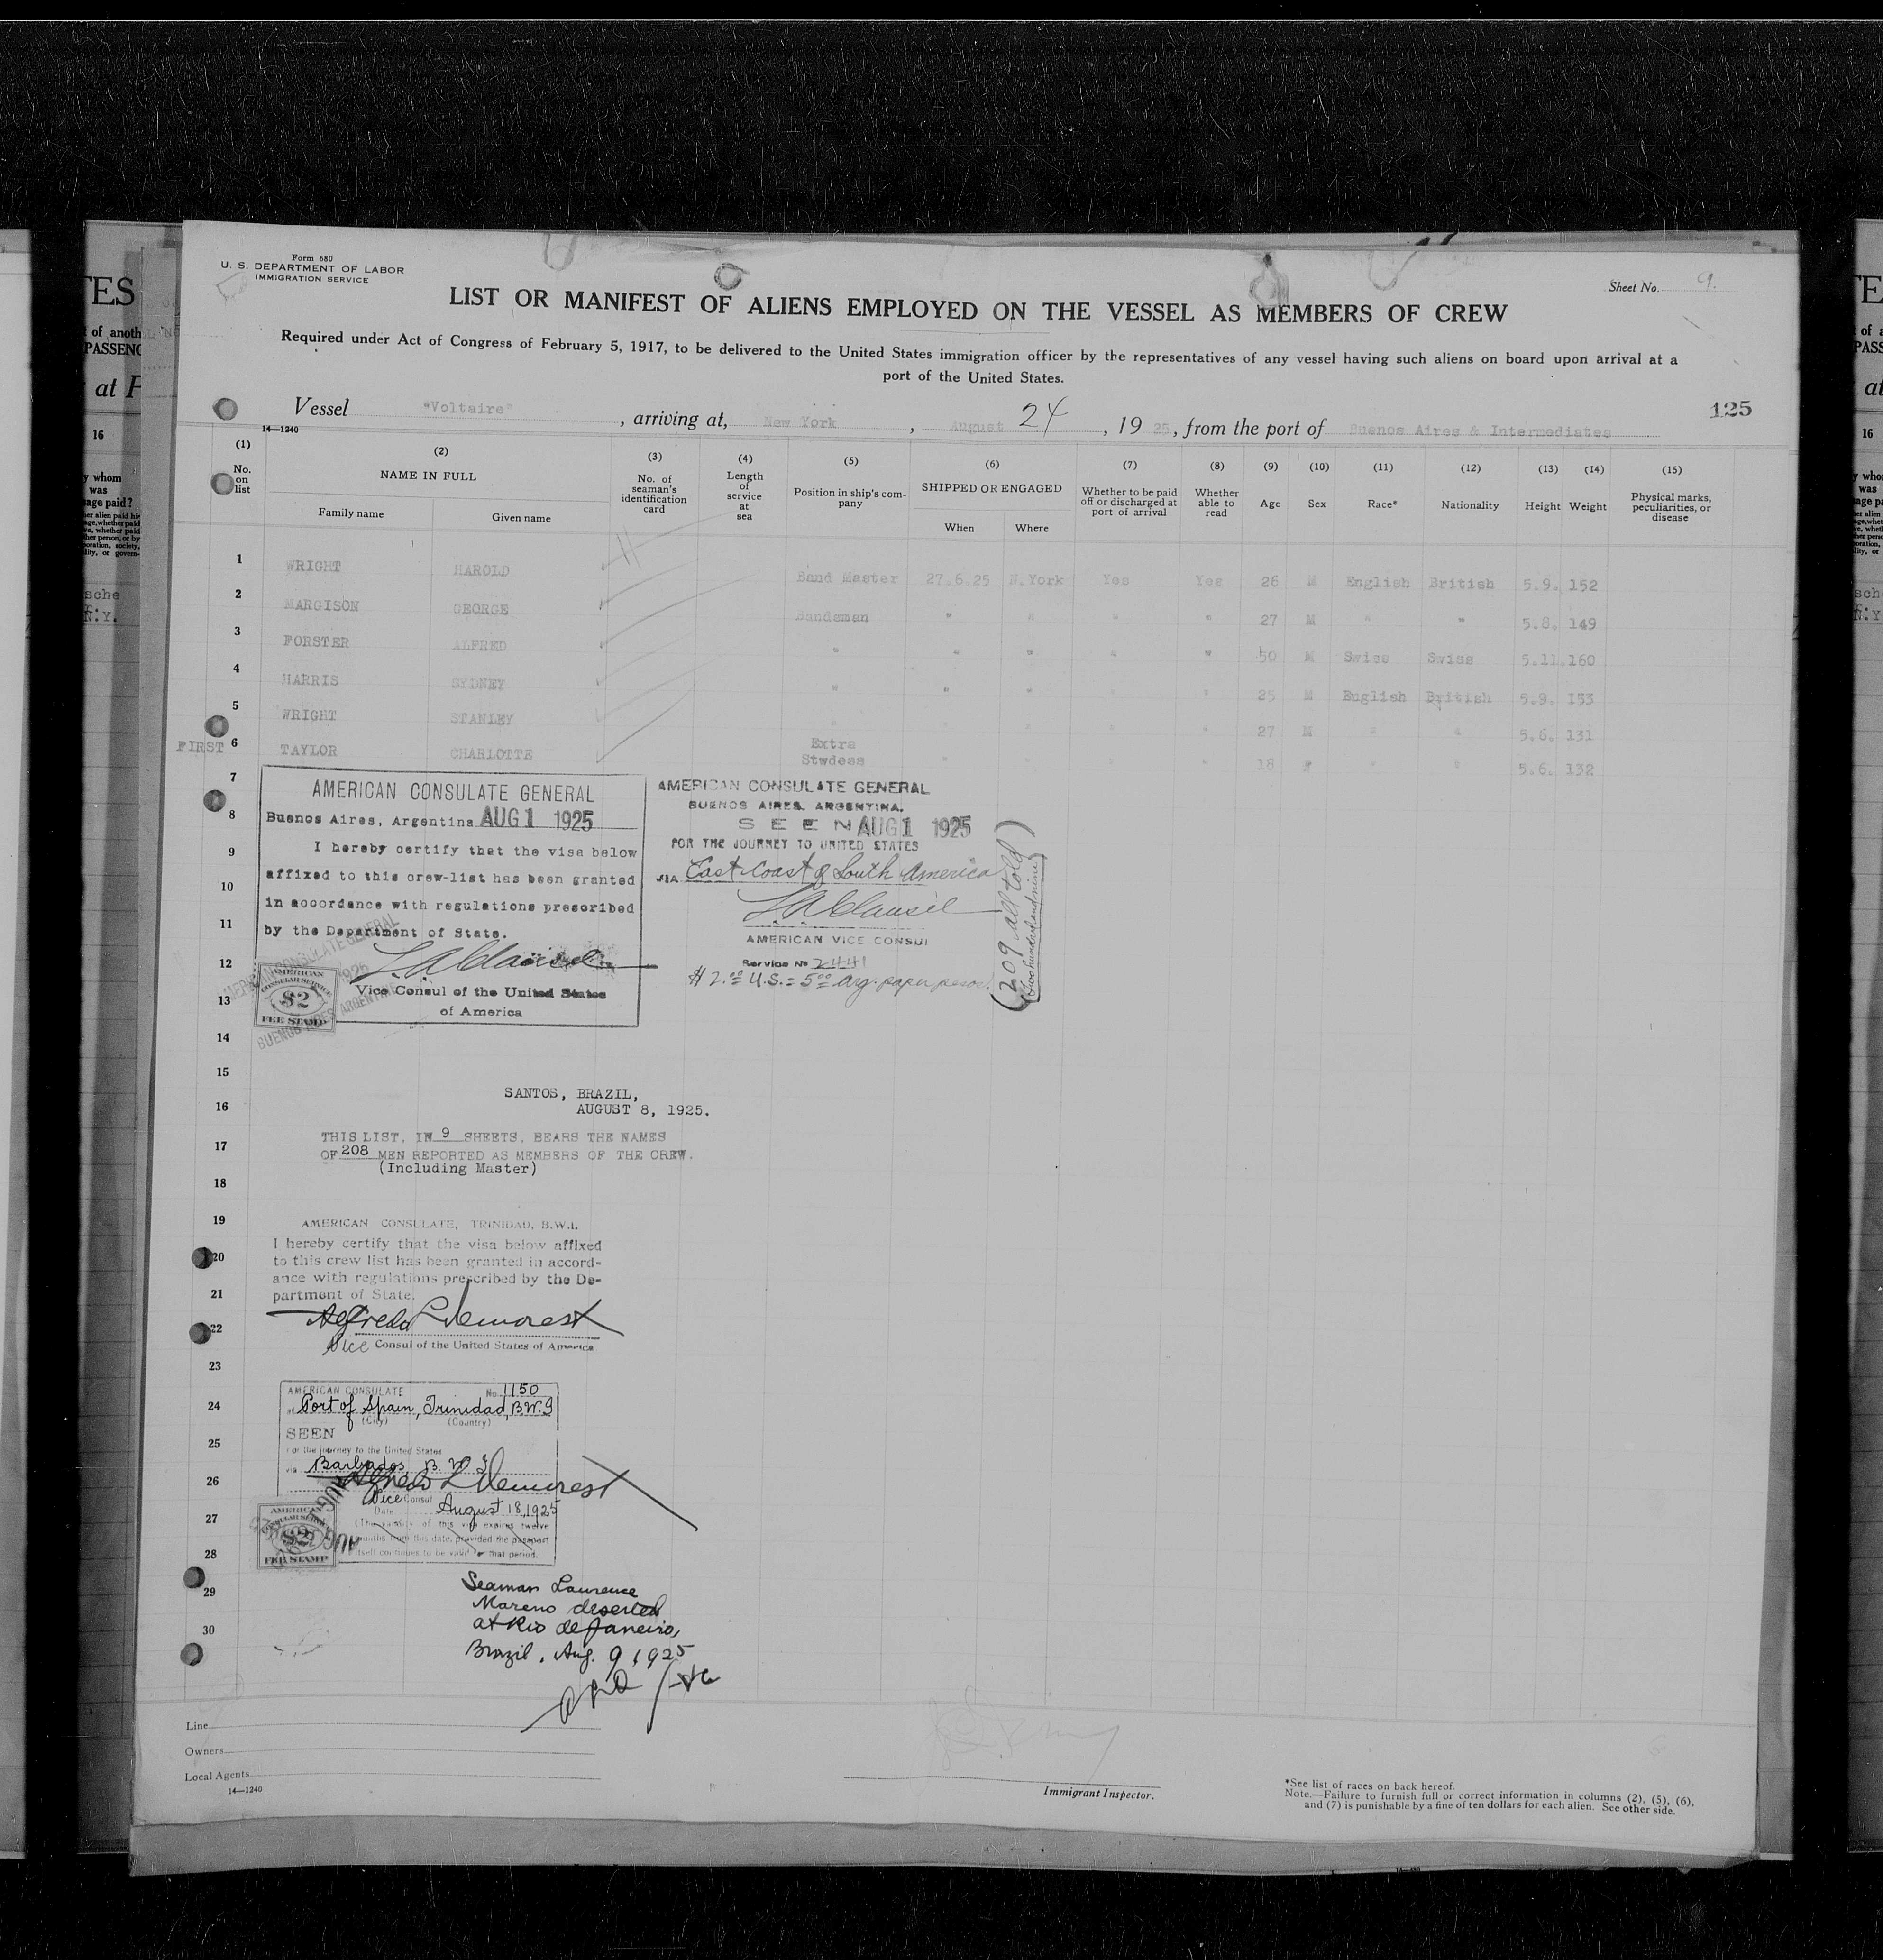 Form 680
U. S. DEPARTMENT OF LABOR
IMMIGRATION SERVICE
Sheet No. 9.
LIST OR MANIFEST OF ALIENS EMPLOYED ON THE VESSEL AS MEMBERS OF CREW
Required under Act of Congress of February 5, 1917, to be delivered to the United States immigration officer by the representatives of any vessel having such aliens on board upon arrival at a
port of the United States.
125
Vessel "Voltaire", arriving at, New York, August 24, 1925, from the port of Buenos Aires & Intermediates
14—1240
(1) (2) (3) (4) (5) (6) (7) (8) (9) (10) (11) (12) (13) (14) (15)
No. on list
NAME IN FULL
Family name Given name
No. of seaman's identification card
Length of service at sea
Position in ship's company
SHIPPED OR ENGAGED
When Where
Whether to be paid off or discharged at port of arrival
Whether able to read
Age Sex Race* Nationality Height Weight
Physical marks, peculiarities, or disease
1 WRIGHT HAROLD Band Master 27.6.25 N.York Yes Yes 26 M English British 5.9. 152
2 MARGISON GEORGE Bandsman " " " " 27 M " " 5.8. 149
3 FORSTER ALFRED " " " " " 50 M Swiss Swiss 5.11. 160
4 HARRIS SYDNEY " " " " " 25 M English British 5.9. 153
5 WRIGHT STANLEY " " " " " 27 M " " 5.6. 131
FIRST 6 TAYLOR CHARLOTTE Extra Stwdess " " " " 18 " " 5.6. 132
7
8
9
10
11
12
13
14
15
16
17
18
19
20
21
22
23
24
25
26
27
28
29
30
AMERICAN CONSULATE GENERAL
Buenos Aires, Argentina AUG 1 1925
I hereby certify that the visa below
affixed to this crew-list has been granted
in accordance with regulations prescribed
by the Department of State.
Vice Consul of the United States
of America
AMERICAN CONSULATE GENERAL
1925
BUENOS AIRES ARGENTINA
AMERICAN
CONSULAR SERVICE
$2
FEE STAMP
AMERICAN CONSULATE GENERAL
BUENOS AIRES, ARGENTINA.
SEEN AUG 1 1925
FOR THE JOURNEY TO UNITED STATES
VIA East Coast of South America
AMERICAN VICE CONSUL
Service No 2441
$2.00 U.S. = 5.00 Arg. paper pesos.
(209 all told)
(Two hundred and nine)
SANTOS, BRAZIL,
AUGUST 8, 1925.
THIS LIST, IN 9 SHEETS, BEARS THE NAMES
OF 208 MEN REPORTED AS MEMBERS OF THE CREW.
(Including Master)
AMERICAN CONSULATE, TRINIDAD, B.W.I.
I hereby certify that the visa below affixed
to this crew list has been granted in accord-
ance with regulations prescribed by the De-
partment of State.
Alfredo L Demorest
Vice Consul of the United States of America
AMERICAN CONSULATE No. 1150
at Port of Spain, Trinidad, B.W.I
(City) (Country)
SEEN
For the journey to the United States
via Barbados, B.W.I.
Alfredo L Demorest
Vice Consul
Date August 18, 1925
(The validity of this visa expires twelve
months from this date, provided the passport
itself continues to be valid for that period.
AMERICAN
CONSULAR SERVICE
$2
FEE STAMP
Seaman Laurence
Moreno deserted
at Rio de Janeiro,
Brazil, Aug. 9, 1925
Line
Owners
Local Agents
14—1240
Immigrant Inspector.
*See list of races on back hereof.
Note.—Failure to furnish full or correct information in columns (2), (5), (6),
and (7) is punishable by a fine of ten dollars for each alien. See other side.